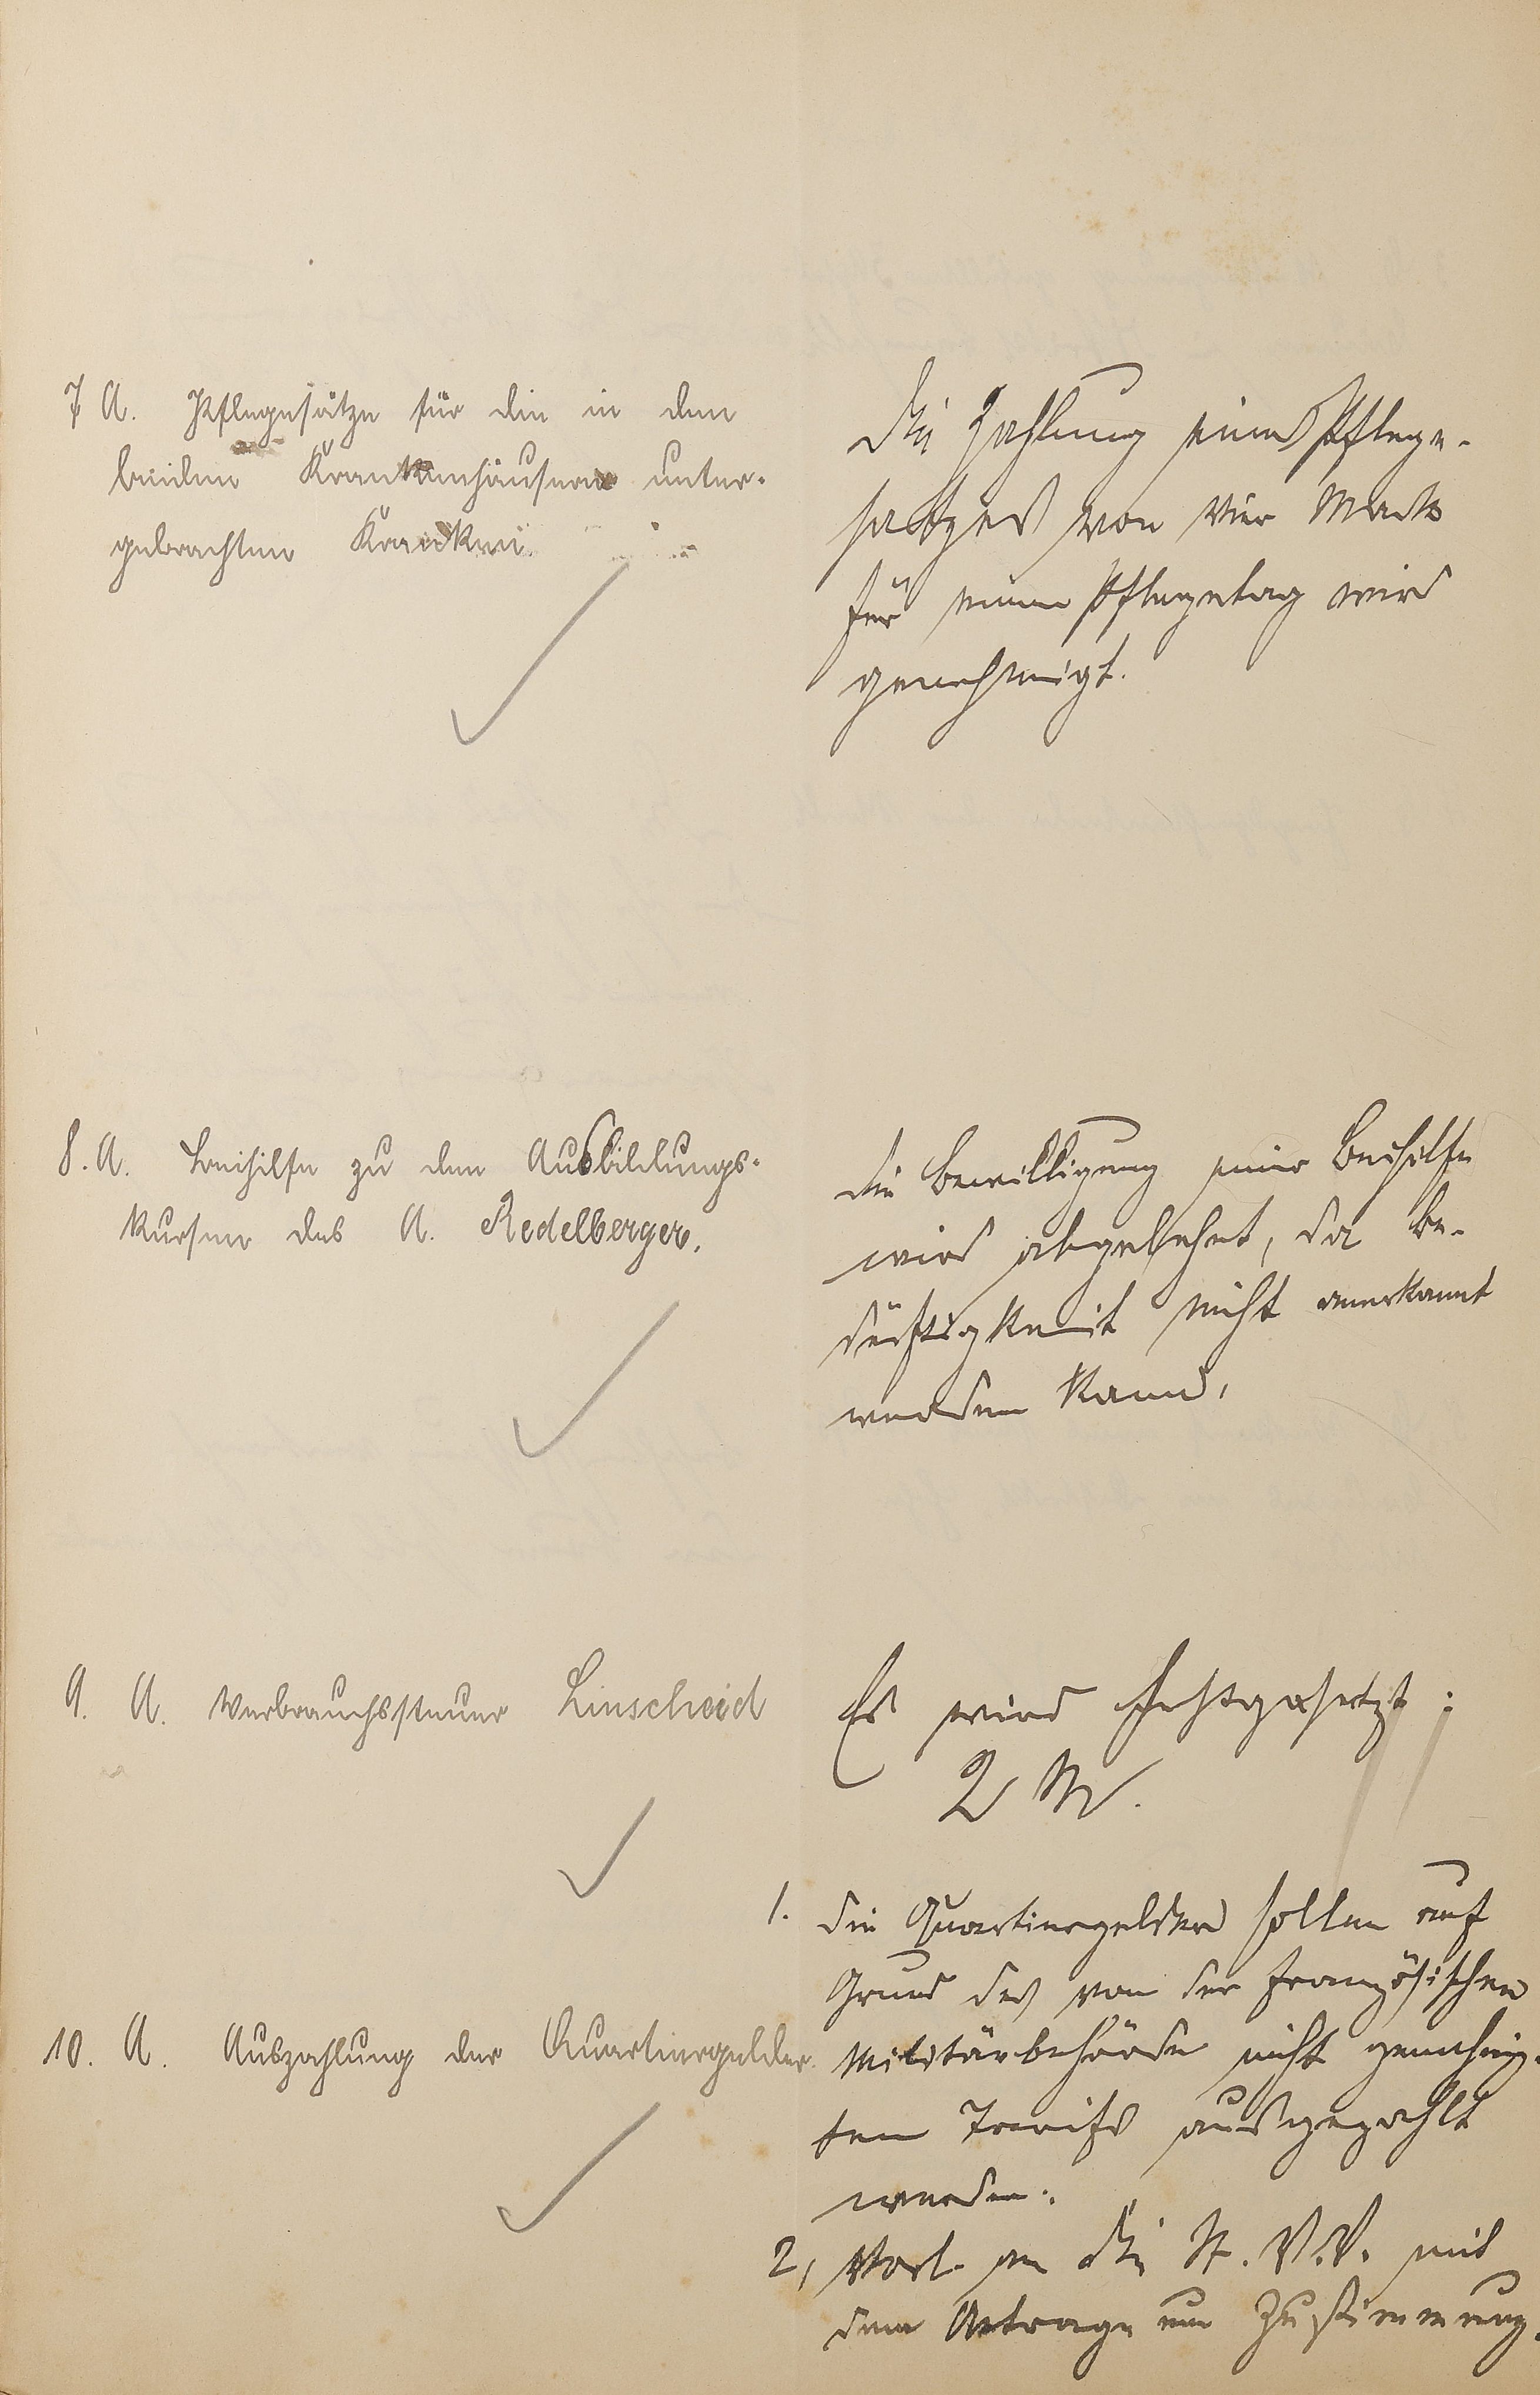 7 A. Pflegesätze für die in den
beiden Krankenhäusern unter-
gebrachten Kranken
Die Zahlung eines Pflege-
satzes von vier Mark
für einen Pflegetag wird
genehmigt.
8. A. Beihilfe zu den Ausbildungs-
kursen des A. Redelberger.
Die Bewilligung einer Beihilfe
wird abgelehnt, da Be-
dürftigkeit nicht anerkannt
werden kann.
9. A. Verbrauchssteuer Linscheid
Es wird festgesetzt:
2 M.
10. A. Auszahlung der Quartiergelder.
1. Die Quartiergelder sollen auf
Grund des von der französischen
Militärbehörde nicht genehmig-
ten Tarifs ausgezahlt
werden.
2, Vorl. an die St. V.V. mit
dem Antrage um Zustimmung.